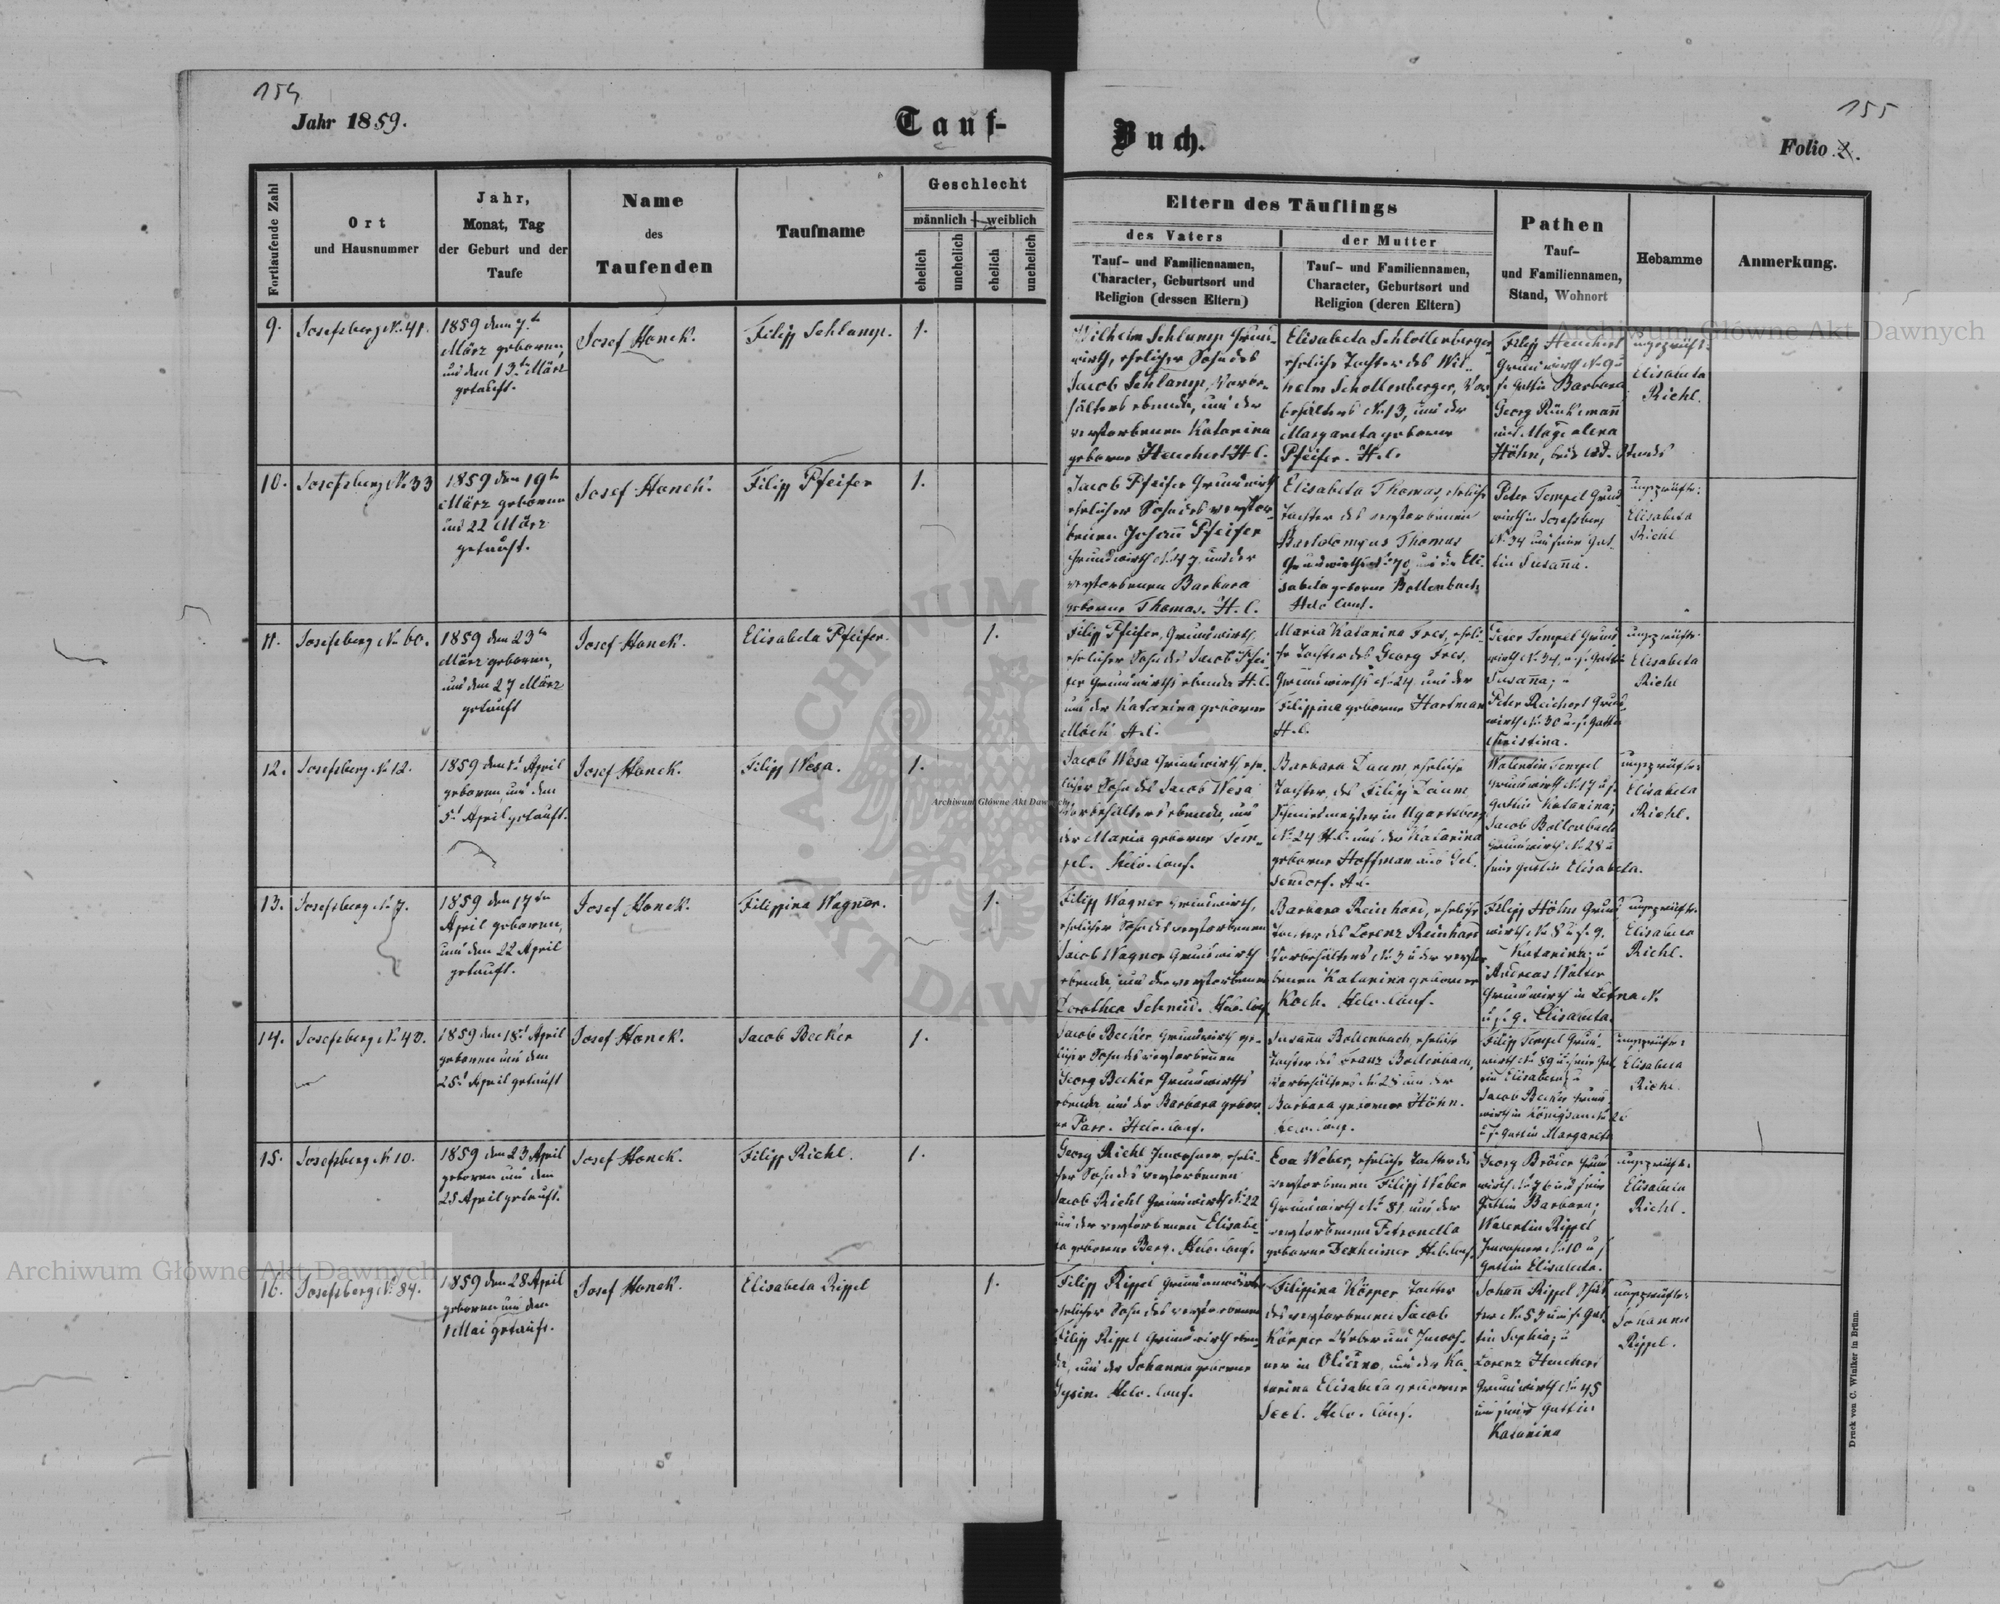 154
Jahr 1859.
Tauf-
Buch.
155
Folio 2.
Fortlaufende Zahl
Ort
und Hausnummer
Jahr,
Monat, Tag
der Geburt und der
Taufe
Name
des
Taufenden
Taufname
Geschlecht
männlich
weiblich
ehelich
unehelich
ehelich
unehelich
Eltern des Täuflings
des Vaters
Tauf- und Familiennamen,
Character, Geburtsort und
Religion (dessen Eltern)
der Mutter
Tauf- und Familiennamen,
Character, Geburtsort und
Religion (deren Eltern)
Pathen
Tauf-
und Familiennamen,
Stand, Wohnort
Hebamme
Anmerkung.
9.
Josefsberg No 41.
1859 den 7.
März geboren,
und den 13ten März
getauft.
Josef Honek.
Filipp Schlamp.
1.
Wilhelm Schlamp Grund-
wirth, ehelicher Sohn des
Jacob Schlamp, Vorbe-
hälters ebenda, und der
verstorbenen Katarina
geborne Heuchert H. C.
Elisabeta Schlottenberger
eheliche Tochter des Wil-
helm Schottenberger, Vor-
behälters No 13, und der
Margareta geborne
Pfeifer. H. C.
Filipp Heuchert
Grundwirth No 9 u
s. Gattin Barbara
Georg
und Magdalena
Höhn, beide led. Standes
ungeprüft:
Elisabeta
Richl.
10.
Josefsberg No 33
1859 den 19ten
März geboren
und 22 März
getauft.
Josef Honek.
Filipp Pfeifer
1.
Jacob Pfeifer Grundwirth
ehelicher Sohn des verstor-
benen Johann Pfeifer
Grundwirth No 47, und der
verstorbenen Barbara
geborne Thomas. H. C.
Elisabeta Thomas, eheliche
Tochter des verstorbenen
Bartolomäus Thomas
Grundwirths No 70, und der Eli-
sabeta geborne Bollenbach
Helv. Conf.
Peter Tempel Grund-
wirth in Josefsberg
No 34 und seine Gat-
tin Susanna.
ungeprüfte:
Elisabeta
Richl
11.
Josefsberg No 60.
1859 den 23ten
März geboren,
und den 27 März
getauft
Josef Honek.
Elisabeta Pfeifer.
1.
Filipp Pfeifer, Grundwirth,
ehelicher Sohn des Jacob Pfei-
fer Grundwirths ebenda H. C.
und der Katarina geborne
Möck H. C.
Maria Katarina Fres, eheli-
che Tochter des Georg Fres,
Grundwirths No 24 und der
Filippina geborne Hartman
H. C.
Peter Tempel Grund-
wirth No 34, u. s. Gattin
Susanna;
Peter Reichert Grund-
wirth No 30 u. s. Gattin
Christina.
ungeprüfte
Elisabeta
Richl
12.
Josefsberg No 12.
1859 den 1. April
geboren, und den
5. April getauft.
Josef Honek.
Filipp Wesa.
1.
Jacob Wesa Grundwirth ehe-
licher Sohn des Jacob Wesa
Vorbehälters ebenda, und
der Maria geborne Tem-
pel. Helv. Conf.
Barbara Daum eheliche
Tochter des Filipp Daum
Schmiedmeister in Ugartsberg
No 24 H. C. und der Katarina
geborne Hoffman aus Gel-
sendorf. H. C.
Walentin Tempel
Grundwirth No 17 u s.
Gattin Katarina;
Jacob Bollenbach
Grundwirth No 28 u
seine Gattin Elisabeta.
ungeprüfte:
Elisabeta
Richl.
13.
Josefsberg No 7.
1859 den 17ten
April geboren,
und den 22 April
getauft.
Josef Honek.
Filippina Wagner.
1.
Filipp Wagner Grundwirth,
ehelicher Sohn des verstorbenen
Jacob Wagner Grundwirth
ebenda, und der verstorbenen
Dorothea Schmid. Helv. Conf.
Barbara Reinhard, eheliche
Tochter des Lorenz Reinhard
Vorbehälters No 3 u der verstor-
benen Katarina geborne
Koch. Helv. Conf.
Filipp Höhn Grund-
wirth No 8 u. s. g.
Katarina; u
Andreas Walter
Grundwirth in Letna No
u. s. g. Elisabeta.
ungeprüfte
Elisabeta
Richl.
14.
Josefsberg No 40.
1859 den 18. April
geboren und den
25. April getauft
Josef Honek.
Jacob Becker
1.
Jacob Becker Grundwirth ehe-
licher Sohn des verstorbenen
Georg Becker Grundwirths
ebenda, und der Barbara gebor-
ne Parr. Helv. Conf.
Susanna Bollenbach, eheliche
Tochter des Franz Bollenbach,
Vorbehälters No 28 und der
Barbara geborne Höhn.
Helv. Conf.
Filipp Tempel Grund-
wirth No 89 u. seine Gat-
tin Elisabeta; u
Jacob Becker Grund-
wirth in Königsau No 26
u. s. Gattin Margareta
ungeprüfte:
Elisabeta
Richl.
15.
Josefsberg No 10.
1859 den 23 April
geboren und den
25 April getauft.
Josef Honek.
Filipp Richl.
1.
Georg Richl Inwohner, eheli-
cher Sohn des verstorbenen
Jacob Richl Grundwirth No 22
und der verstorbenen Elisabe-
ta geborne Berg. Helv. Conf.
Eva Weber, eheliche Tochter des
verstorbenen Filipp Weber
Grundwirth No 81 und der
verstorbenen Petronella
geborne Denheimer H. Conf.
Georg Bröder Grund-
wirth No 76 und seine
Gattin Barbara;
Walentin Rippel
Inwohner No 10 u s
Gattin Elisabeta.
ungeprüfte:
Elisabeta
Richl.
16.
Josefsberg No 84.
1859 den 28 April
geboren und den
1 Mai getauft.
Josef Honek.
Elisabeta Rippel
1.
Filipp Rippel Grundwirth
ehelicher Sohn des verstorbenen
Filipp Rippel Grundwirth eben-
da, und der Johanna geborne
Helv. Conf.
Filippina Körper Tochter
des verstorbenen Jacob
Körper Weber und Inwoh-
ner in, und der Ka-
tarina Elisabeta geborne
Seel. Helv. Conf.
Johann Rippel
No 53 und s. Gat-
tin Sophia; u
Lorenz Heuchert
Grundwirth No 45
und seine Gattin
Katarina
ungeprüfte:
Johanna
Rippel.
Druck von C. Winiker in Brünn.
Archiwum Główne Akt Dawnych
Archiwum Główne Akt Dawnych
Archiwum Główne Akt Dawnych
ARCHIWUM
AKT DAWNYCH